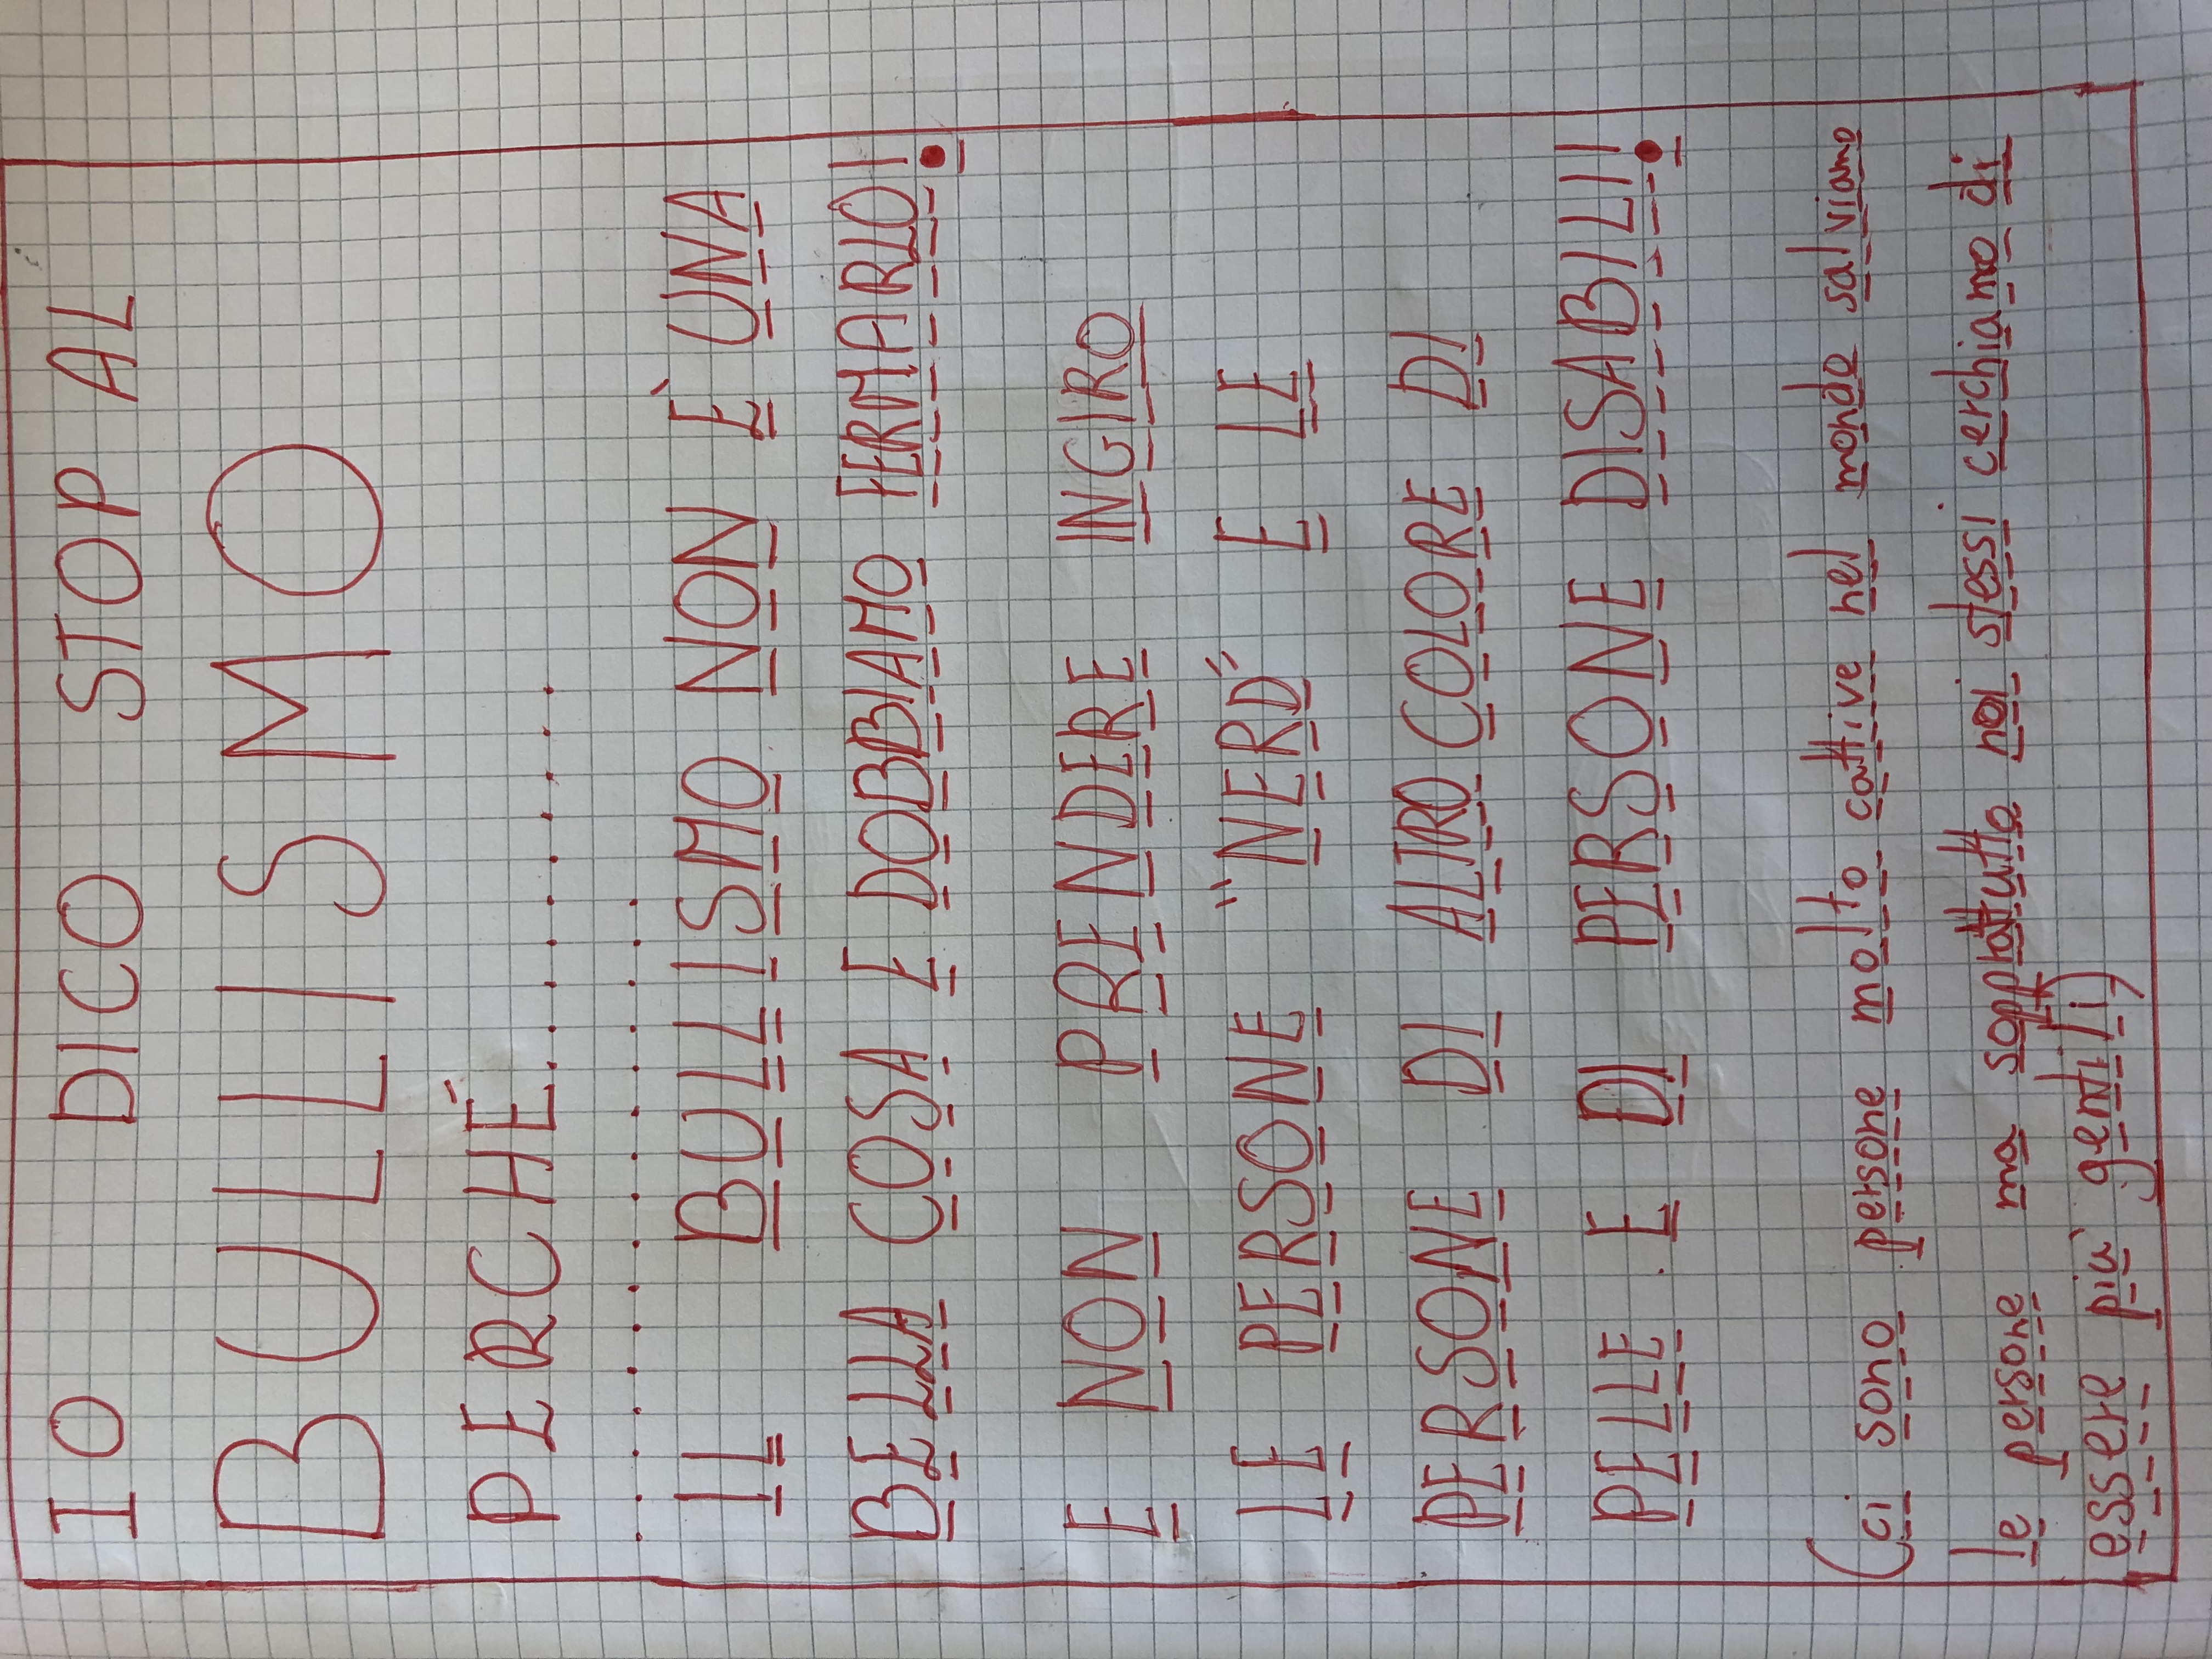 IO DICO STOP AL
BULLISMO
PERCHÉ................
IL BULLISMO NON È UNA
BELLA COSA E DOBBIAMO FERMARLO!
E NON PRENDERE INGIRO
LE PERSONE "NERD" E LE
PERSONE DI ALTRO COLORE DI
PELLE E DI PERSONE DISABILI!
(ci sono persone molto cattive nel mondo salviamo
le persone ma sopprattutto noi stessi cerchiamo di
essere più gentili)